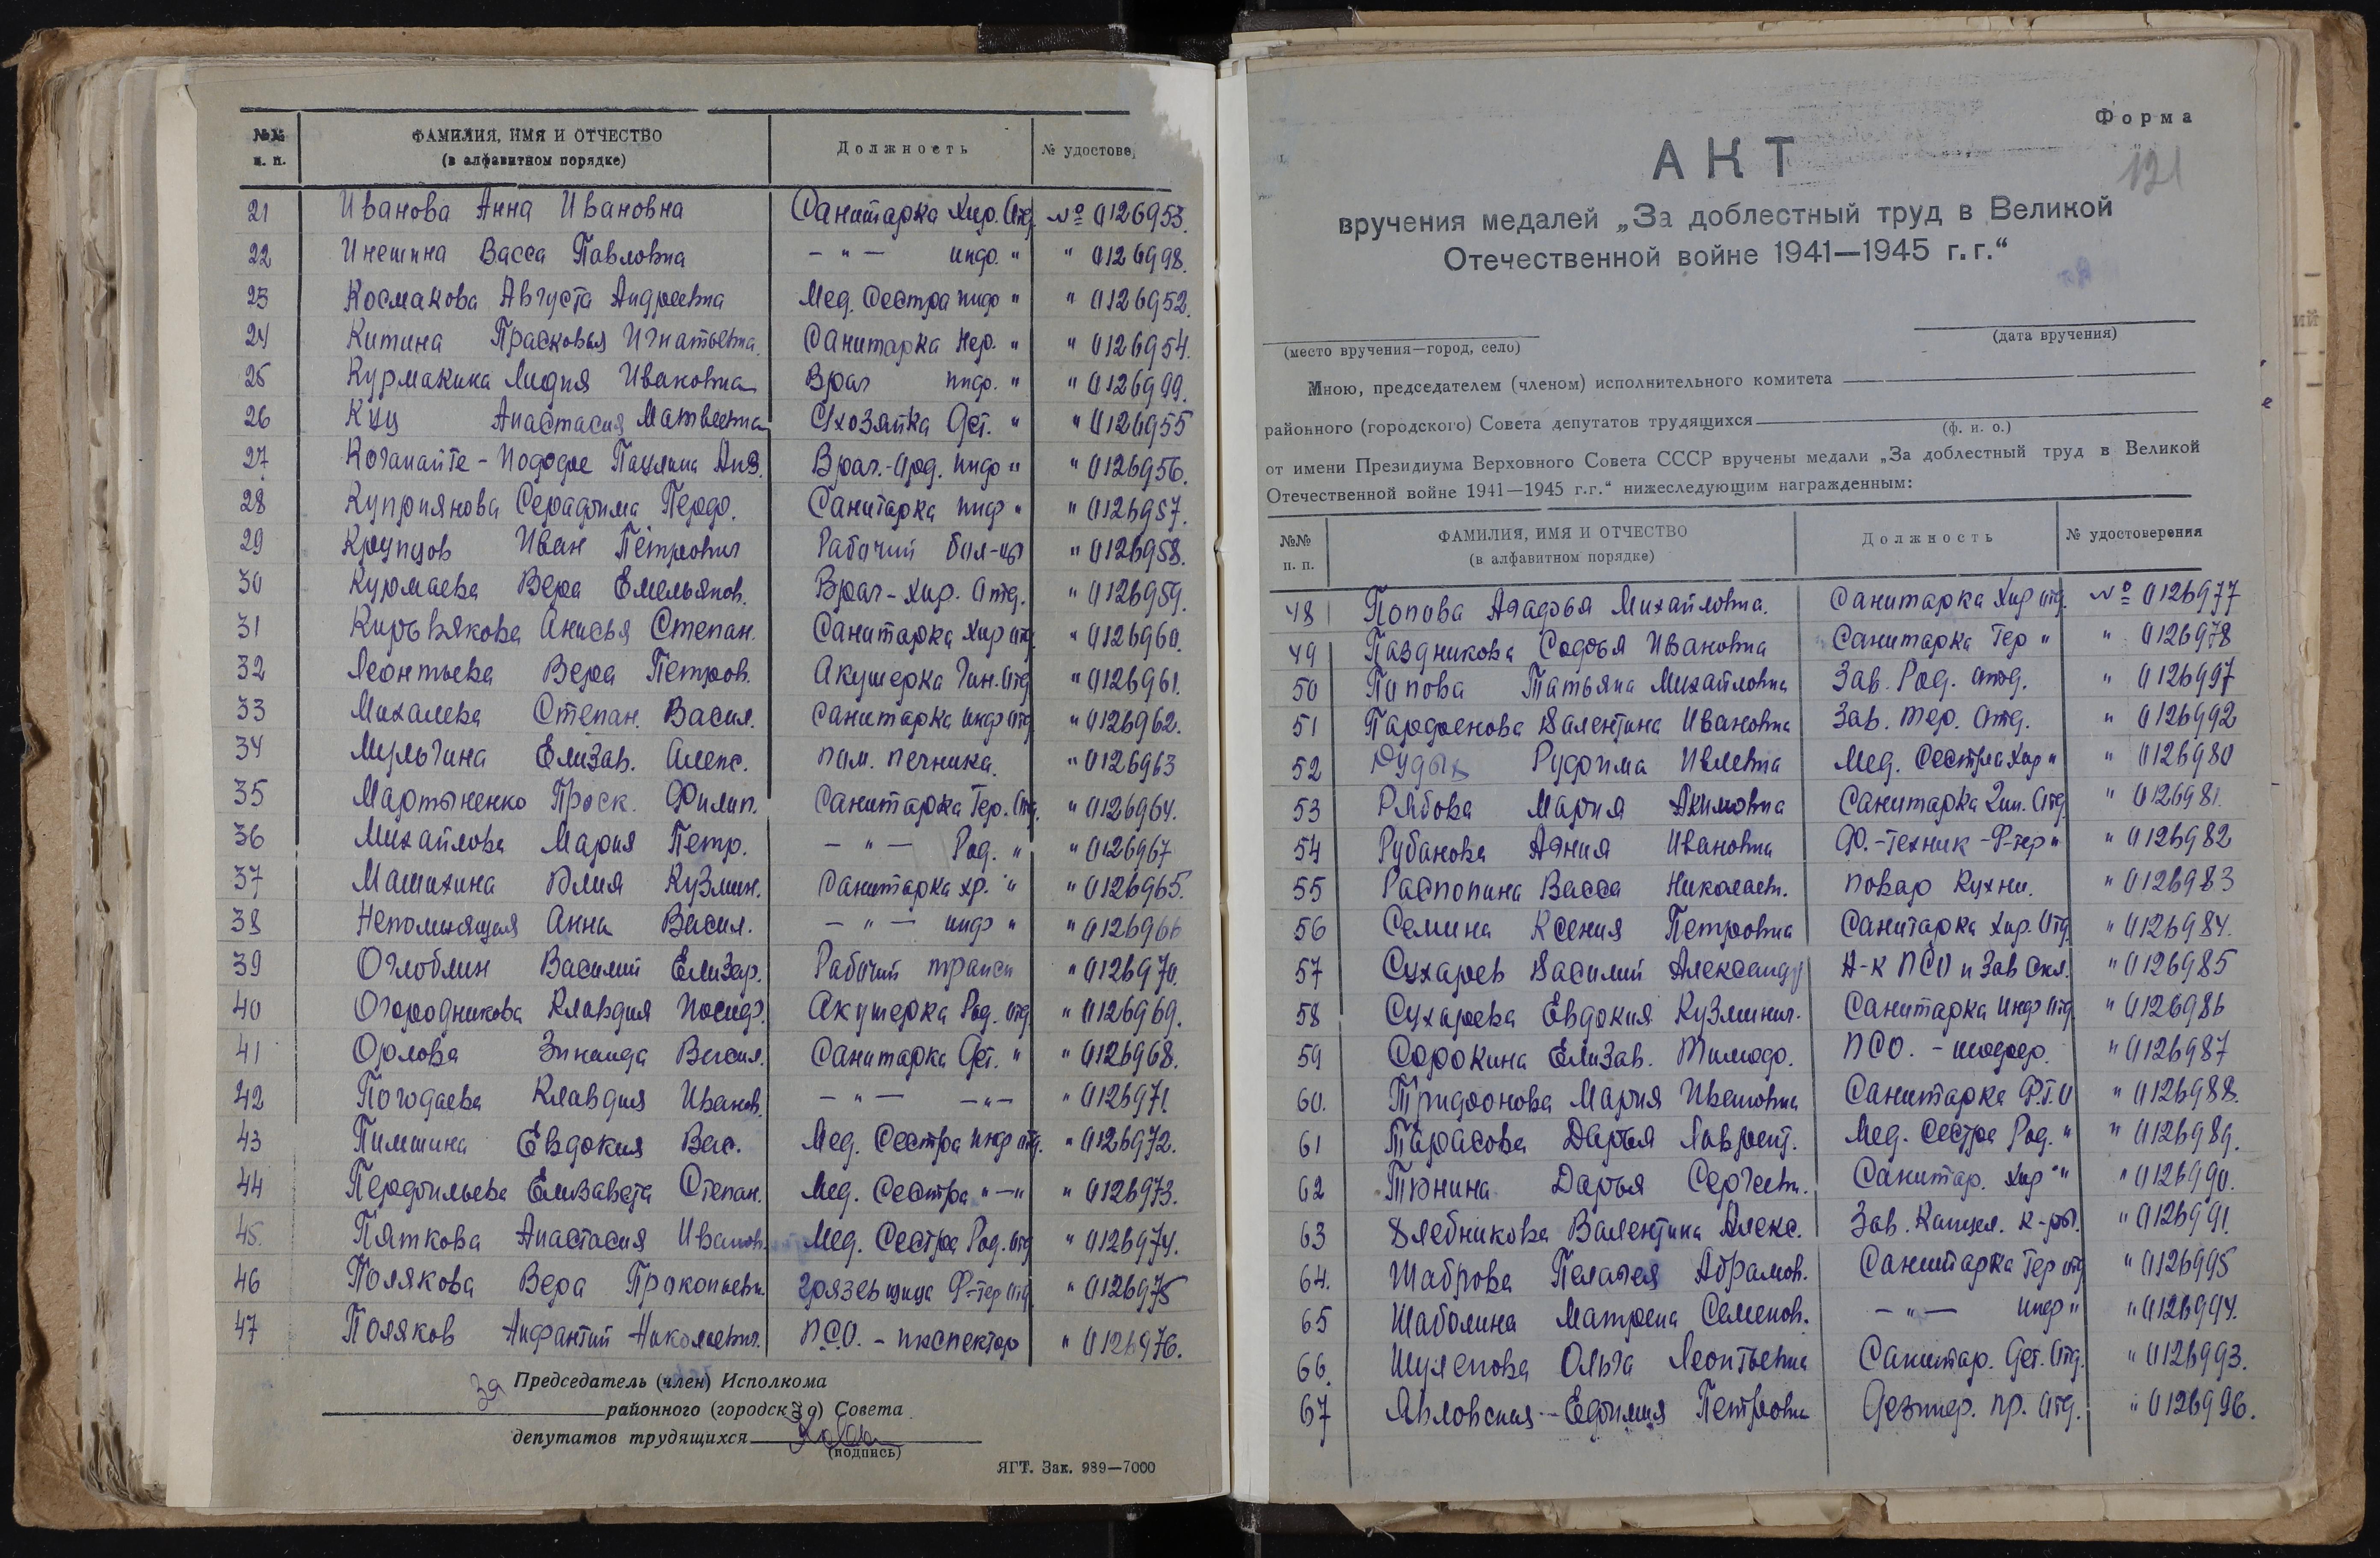 №№ п. п. ФАМИЛИЯ, ИМЯ И ОТЧЕСТВО (в алфавитном порядке) Должность № удостове
21 Иванова Анна Ивановна Санитарка Хир. Отд. № 0126953.
22 Инешина Васса Павловна — " — инф. " " 0126998.
23 Космакова Августа Андреевна Мед. Сестра инф " " 0126952.
24 Китина Прасковья Игнатьевна. Санитарка Нер. " " 0126954.
25 Курмакина Лидия Ивановна Врач инф. " " 0126999.
26 Куц Анастасия Матвеевна С/хозяйка Дет. " " 0126955
27 Паулина Врач-Орд. инф " " 0126956.
28 Куприянова Серафима Перф. Санитарка инф " " 0126957.
29 Крупцов Иван Петрович Рабочий бол-цы " 0126958.
30 Курмаева Вера Емельянов. Врач-хир. Отд. " 0126959.
31 Анисья Степан. Санитарка Хир отд " 0126960.
32 Леонтьева Вера Петров. Акушерка Гин. Отд " 0126961.
33 Михалева Степан. Васил. Санитарка инф отд " 0126962.
34 Мульгина Елизав. Алекс. пом. печника. " 0126963
35 Мартыненко Проск. Филип. Санитарка Тер. Отд. " 0126964.
36 Михайлова Мария Петр. — " — Род. " " 0126967
37 Машихина Юлия Кузмин. Санитарка хр. " " 0126965.
38 Непомнящая Анна Васил. — " — инф " " 0126966
39 Оглоблин Василий Елизар. Рабочий трансп " 0126970.
40 Огородникова Клавдия Иосиф. Акушерка Род. отд " 0126969.
41 Орлова Зинаида Васил. Санитарка Дет. " " 0126968.
42 Погодаева Клавдия Иванов. — " — — " — " 0126971.
43 Пимшина Евдокия Вас. Мед. Сестра инф отд. " 0126972.
44 Перфильева Елизавета Степан. Мед. Сестра " — " " 0126973.
45. Пяткова Анастасия Иванов. Мед. Сестра Род. отд " 0126974.
46 Полякова Вера Прокопьевн. грязевщица Ф-тер отд. " 0126975
47 Поляков Нифантий Николаевич. П.С.О. - инспектор " 0126976.
за Председатель (член) Исполкома
районного (городск Совета
депутатов трудящихся
(подпись)
ЯГТ. Зак. 989—7000
Форма
121
АКТ
вручения медалей „За доблестный труд в Великой
Отечественной войне 1941—1945 г.г.“
(место вручения—город, село) (дата вручения)
Мною, председателем (членом) исполнительного комитета
районного (городского) Совета депутатов трудящихся
(ф. и. о.)
от имени Президиума Верховного Совета СССР вручены медали „За доблестный труд в Великой
Отечественной войне 1941—1945 г.г.“ нижеследующим награжденным:
№№ п. п. ФАМИЛИЯ, ИМЯ И ОТЧЕСТВО (в алфавитном порядке) Должность № удостоверения
48 Попова Агафья Михайловна. Санитарка Хир отд. № 0126977
49 Паздникова Софья Ивановна Санитарка Тер " " 0126978
50 Попова Татьяна Михайловна Зав. Род. отд. " 0126997
51 Парфенова Валентина Ивановна Зав. тер. Отд. " 0126992
52 Руфима Ивлевна Мед. Сестра Хир " " 0126980
53 Рябова Мария Акимовна Санитарка Гин. Отд " 0126981.
54 Рубанова Агния Ивановна Ф.-техник-Ф-тер " " 0126982
55 Распопина Васса Николаевн. повар Кухни. " 0126983
56 Семина Ксения Петровна Санитарка Хир. Отд " 0126984.
57 Сухарев Василий Александр Н-к ПСО и Зав Скл. " 0126985
58 Сухарева Евдокия Кузминич. Санитарка Инф отд " 0126986
59 Сорокина Елизав. Тимоф. ПСО. - шофер. " 0126987
60. Трифонова Мария Ивановна Санитарка Ф.Т.О " 0126988.
61 Тарасова Дарья Лаврент. Мед. Сестра Род. " " 0126989.
62 Тюнина Дарья Сергеевн. Санитар. Хир " " 0126990.
63 Хлебникова Валентина Алекс. Зав. Канцел. к-ры. " 0126991.
64. Шаброва Пелагея Абрамов. Санитарка Тер отд " 0126995
65 Шаболина Матрена Семенов. — " — инф " " 0126994.
66. Шулепова Ольга Леонтьевна Санитар. Дет. Отд. " 0126993.
67 Явловская Ефимия Петровна Дезинф. пр. Отд. " 0126996.